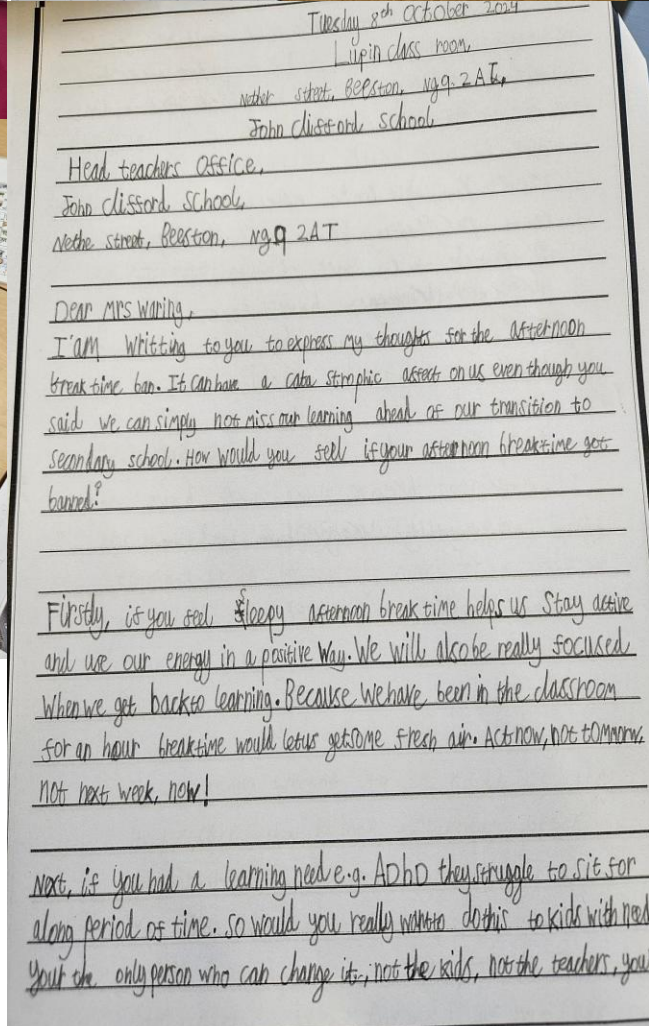 Tuesday 8th October 2024
Lupin class room,
Nether street, Beeston, Ng9 2AT,
John clifford school
Head teachers office,
John clifford school,
Nethe street, Beeston, Ng9 2AT
Dear Mrs Waring,
I'am writting to you to express my thoughts for the afternoon
break time ban. It can have a cata strophic affect on us even though you
said we can simply not miss our learning ahead of our transition to
secondary school. How would you feel if your afternoon breaktime got
banned?
Firstly, if you feel sleepy afternoon break time helps us stay active
and use our energy in a positive way. We will also be really focused
when we get back to learning. Because we have been in the classroom
for an hour breaktime would let us get some fresh air. Act now, not tommorw,
not next week, now!
Next, if you had a learning need e.g. ADhD they struggle to sit for
along period of time. So would you really want to do this to kids with need
your the only person who can change it, not the kids, not the teachers, you